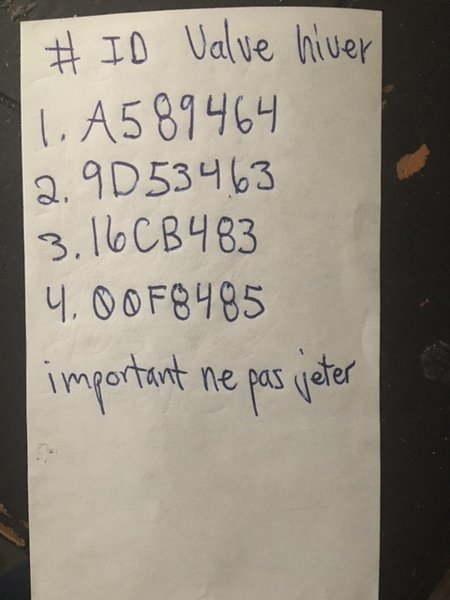 # ID Valve hiver
1. A589464
2. 9D53463
3. 16CB483
4. 00F8485
important ne pas jeter